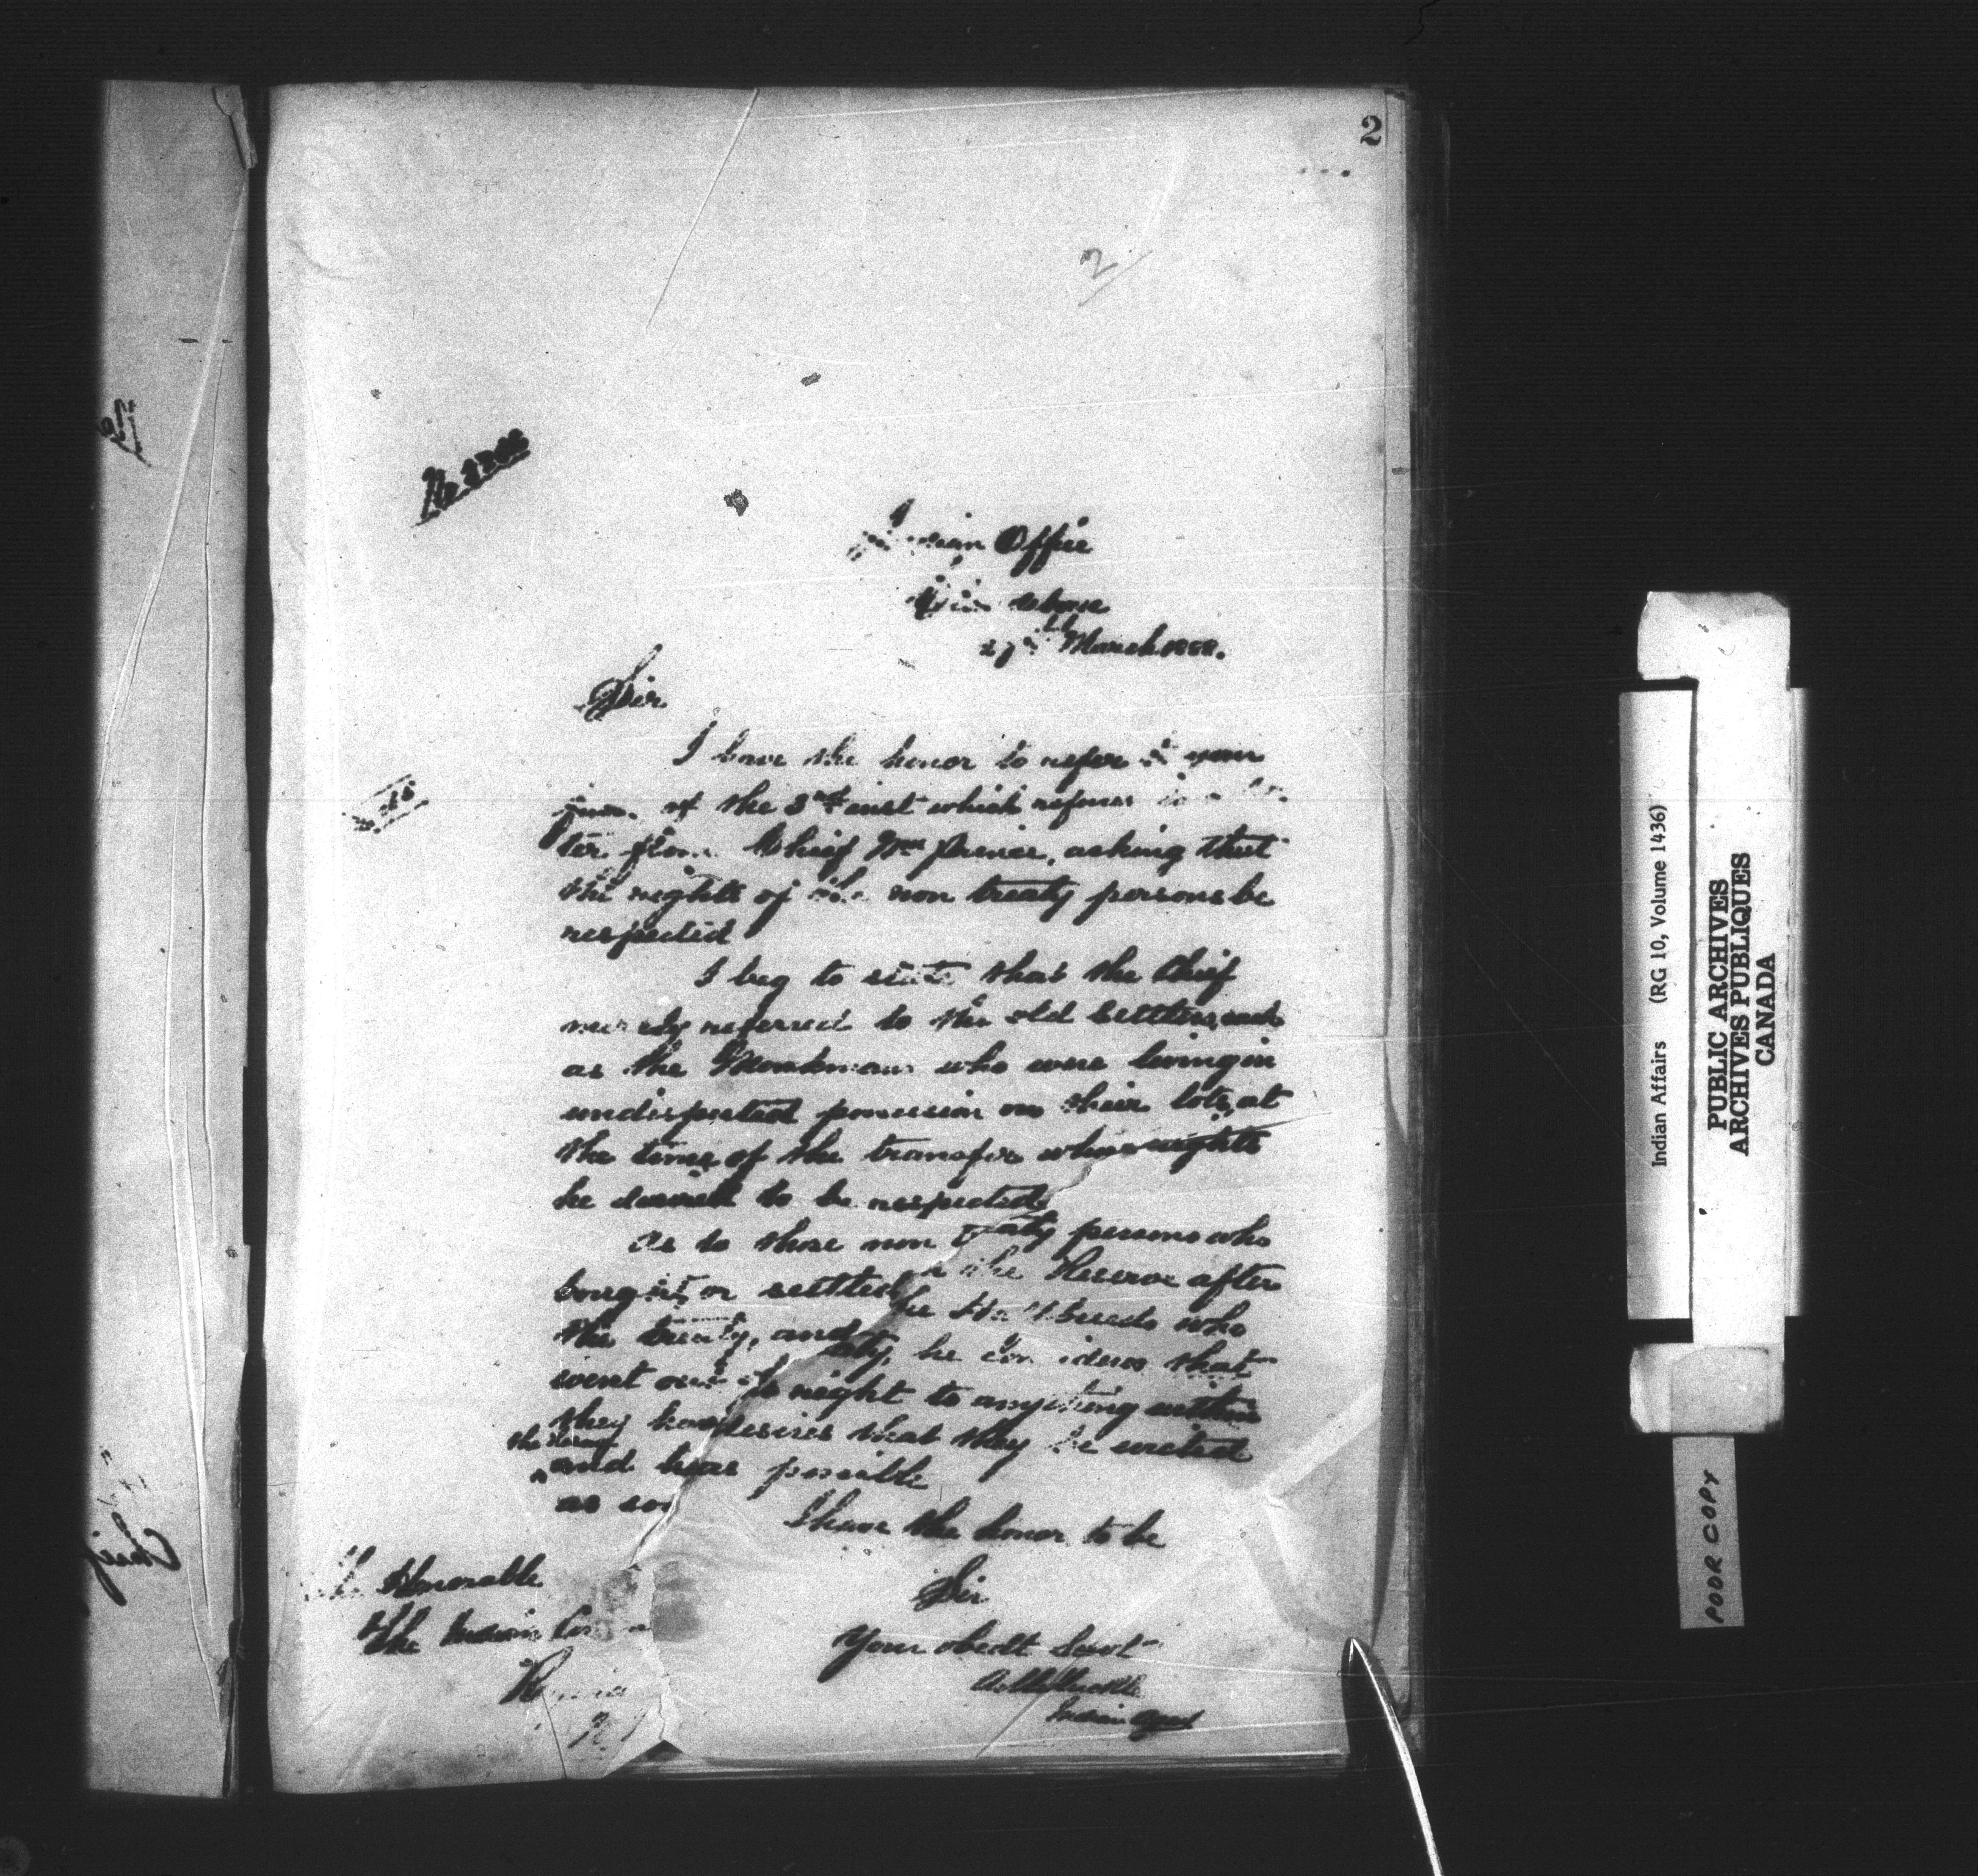 2
2
Indian Office
27th March 1888.
Sir
I have the honor to refer to your
of the 3rd inst which refers to a let
ter from Chief Wm Prince, asking that
the rights of the non treaty persons be
respected
I beg to state that the Chief
merely referred to the old settlers, such
as the Monkmans who were living in
undisputed possession on their lots, at
the time of the transfer whose rights
he desired to be respected
As to those non treaty persons who
bought or settled on the Reserve after
the treaty, and the Halfbreeds who
went out of treaty, he considers that
they have no right to anything within
the Reserve
and desires that they be evicted
as soon as possible
I have the honor to be
Sir
Your obedt Servt
Indian Agent
The Honorable
The Indian Com
Regina
Chief
Indian Affairs (RG 10, Volume 1436)
PUBLIC ARCHIVES
ARCHIVES PUBLIQUES
CANADA
POOR COPY